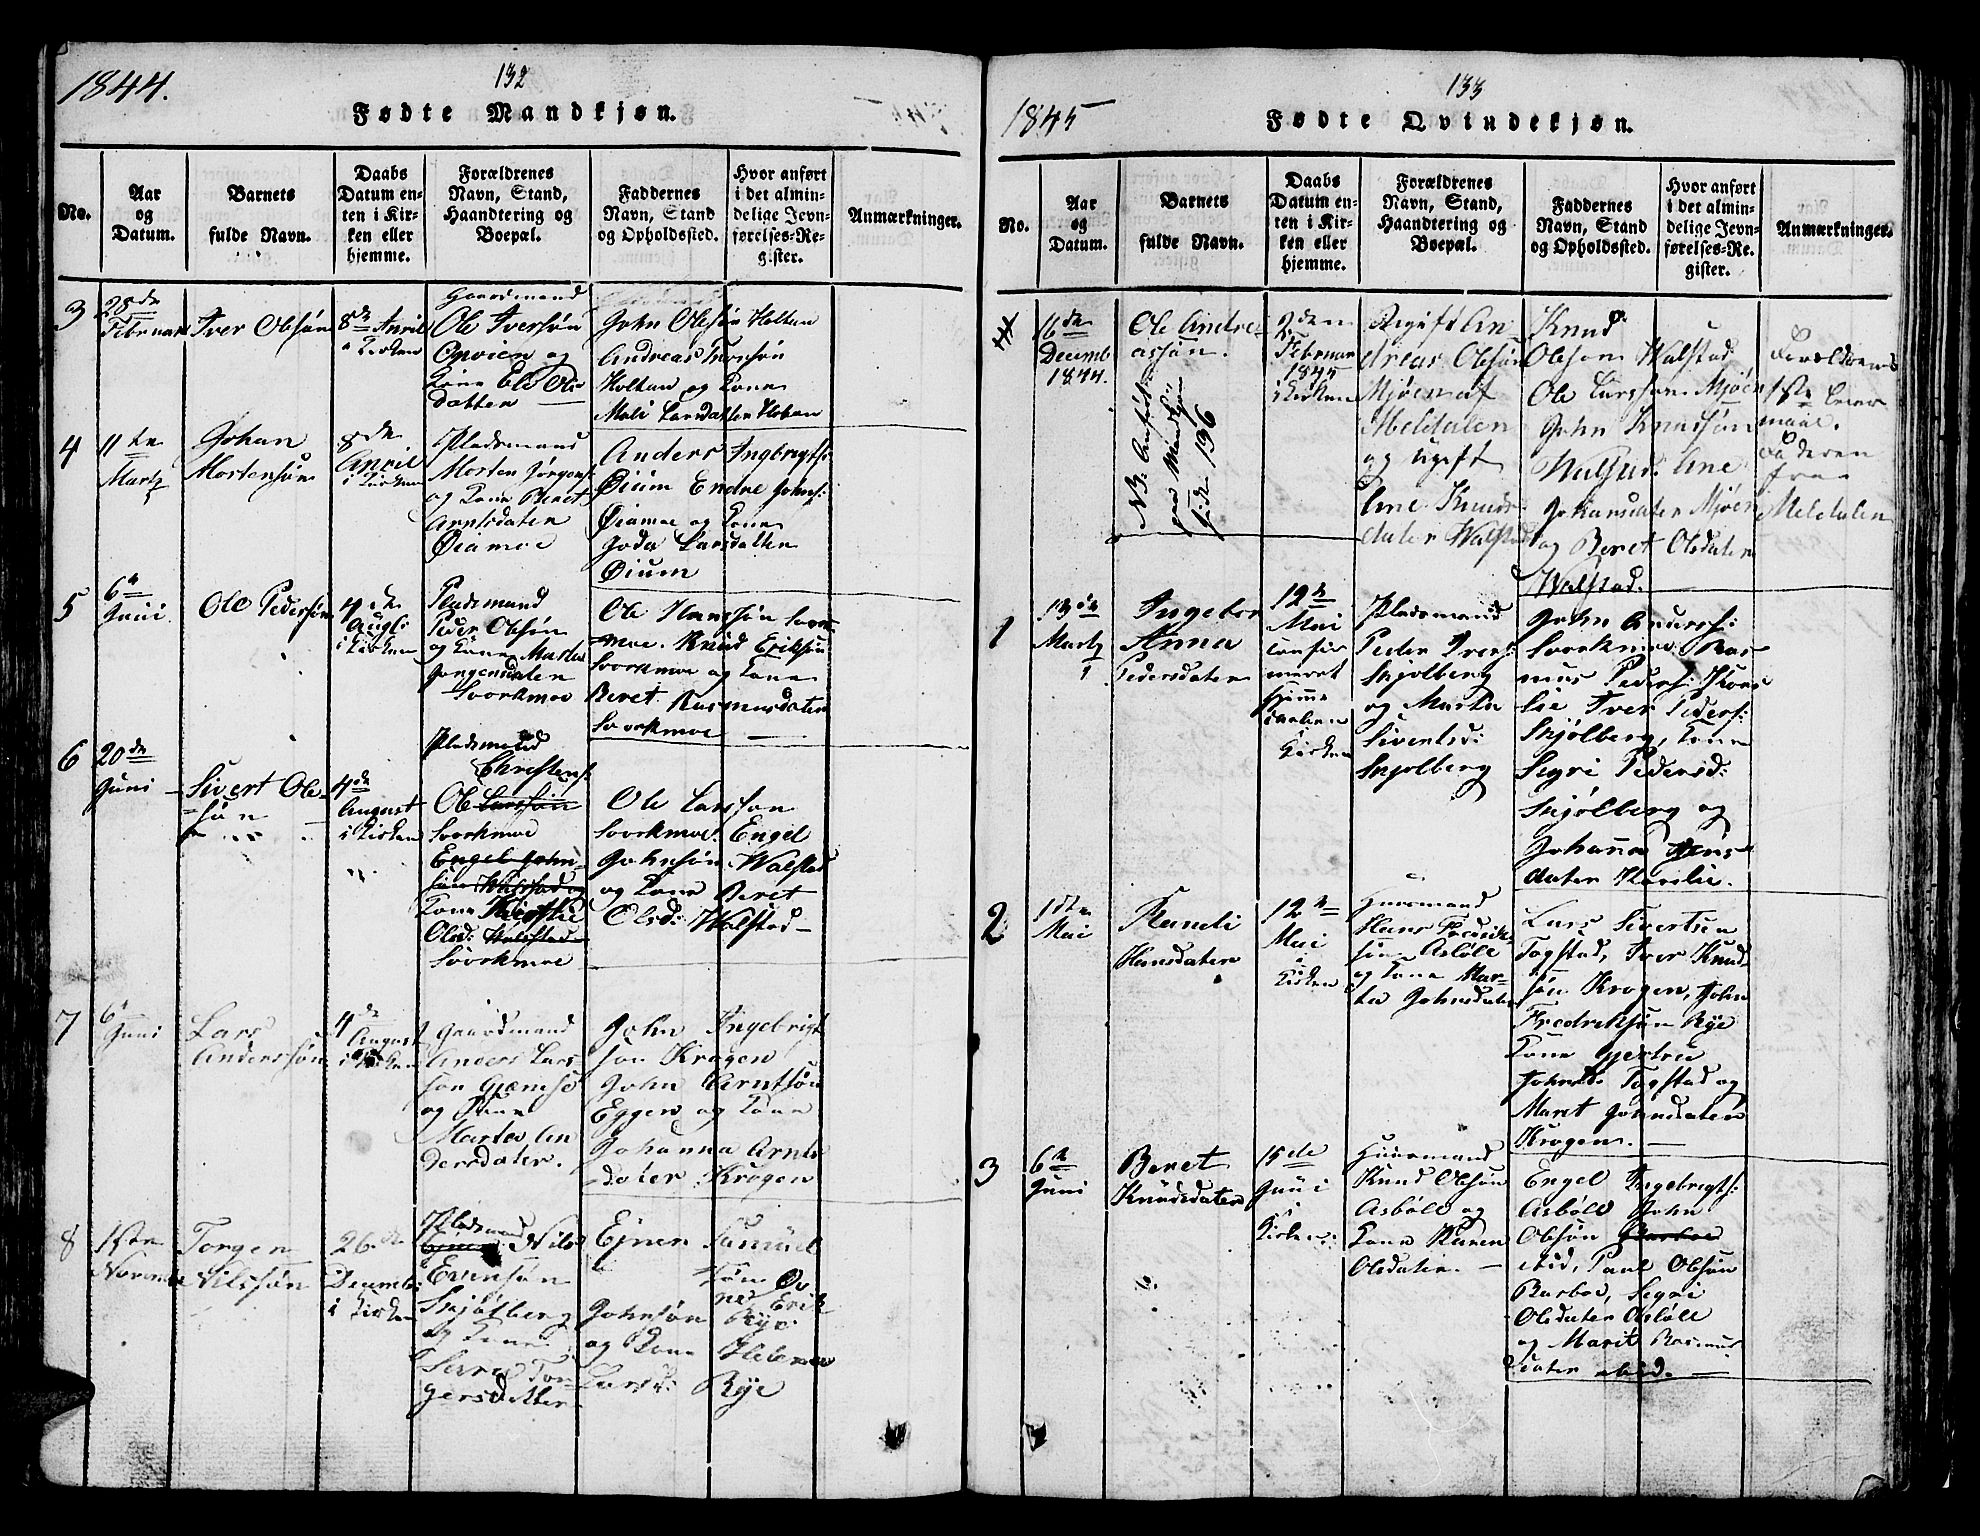 1844.
132
Fødte Mandkjøn.
No.
Aar
og
Datum.
Barnets
fulde Navn.
Daabs
Datum en-
ten i Kir-
ken eller
hjemme.
Forældrenes
Navn, Stand,
Haandtering og
Boepæl.
Faddernes
Navn, Stand
og Opholdssted.
Hvor anført
i det almin-
delige Jevn-
førelses-Re-
gister.
Anmærkninger.
3
28de
Februar
Iver Olesøn
8de April
i Kirken
Gaardmand
Ole Iversøn
og
Kone Eli Ols
datter
John Olesøn Holtan
Andreas
Holtan og Kone
Mali Larsdatter Holtan
4
11te
Martz
Johan
Mortensøn
8de
April
i Kirken
Pladsmand
Morten Jørgens:
og Kone Beret
Arntsdater
Øiamoe
Anders Ingbrigts:
Øium Endre Johns:
Øiamoe og Kone
Larsdatter
Øium
5
6te
Juni
Ole Pedersøn
4de
Augs:
i Kirken
Pladsmand
Peder Olesøn
og Kone Marta
Jørgensdater
Svorkmoe
Ole Hanssøn Svork
moe. Knud Eriksøn
Svorkmoe og Kone
Beret Rasmusdater
Svorkmoe
6
20de
Juni
Sivert Ole-
søn
4de
August
i Kirken
Pladsmand
Christens:
Ole Larssøn
Svorkmoe
Engel John-
søn Walstad og
Kone Kirstie
Olsd: Walstad
Svorkmoe
Ole Larssøn
Svorkmoe. Engel
Johnsøn Walstad
og Kone Beret
Olsd: Walstad
7
6te
Juni
Lars
Anderssøn
4de
August
i Kirken
Gaardmand
Anders Lars
søn Gjemse
og Kone
Marta An
dersdater.
John Ingebrigt
søn Krogen
John Arntsøn
Eggen og Kone
Johanna Arnts
dater Krogen
8
1ste
Novembe
Torger
Nilssøn
26de
Decemb:
i Kirken
Pladsmand
Ejner Nils
Evensøn
Skjølberg
og Kone
Tor-
gersdatter
Ejner Samuel
søn
Erik
Johnsøn Rye
og Kone Helena
Larsd: Rye
1845
133
Fødte Qvindekjøn.
No.
Aar
og
Datum.
Barnets
fulde Navn.
Daabs
Datum en-
ten i Kir-
ken eller
hjemme.
Forældrenes
Navn, Stand,
Haandtering og
Boepæl.
Faddernes
Navn, Stand
og Opholdssted.
Hvor anført
i det almin-
delige Jevn-
førelses-Re-
gister.
Anmærkninger.
16de
Decemb
1844.
Ole Andre
assøn.
NB: Anført
paa Mandkjøn
Side 136
2den
Februar
1845
i Kirken
Ungkarl An
dreas Olesøn
Mjøen af
Meldalen
og ugift
Ane Knuds
dater Walstad
Knud
Olsøn Walstad
Ole Larssøn Mjøen
John Knudsøn
Walstad. Ane
Johansdater Mjøen
og Beret Olsdater
Walstad.
Forældrenes
1ste Leier
maal.
Faderen
fra
Meldalen
1
13de
Martz
Ingebor
Anna
Pedersdater
12te
Mai
confir
meret
hjemme
Kirken
Pladsmand
Peder Ivers:
Skjølberg
og Marta
Sivertsd:
Skjølberg
John Anders:
Svorkmoe Ras
mus Peders: Kors
lie Iver Peders:
Skjølberg, Kone
Segri Pedersd:
Skjølberg og
Johanna Jens
dater Korslie.
2
1ste
Mai
Randi
Hansdater
12te
Mai
i
Kirken
Huusmand
Hans Fredrik
søn Asbøle
og Kone Mar-
ta Johnsdater
Lars Sivertsen
Togstad, Iver Knud
søn Krogen, John
Fredriksøn Rye
Kone Gjertru
Johnsd: Togstad og
Maret Johnsdater
Krogen.
3
6te
Juni
Beret
Knudsdater
15de
Juni
i
Kirken
Huusmand
Knud Olsøn
Asbøle og
Kone Karen
Olsdater
Engel Ingebrigts:
Asbøle John
Olesøn
ibid, Paul Olsøn
Barboe, Segri
Olsdater Asbøle
og Marit Rasmus
dater ibid.